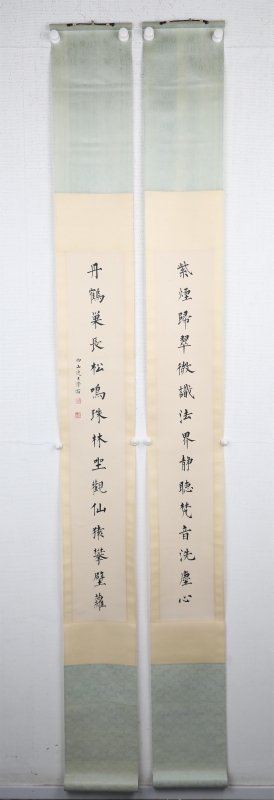 紫煙歸翠微識法界靜聽梵音洗塵心
丹鶴巢長松鳴珠林坐觀仙猿攀壁蘿